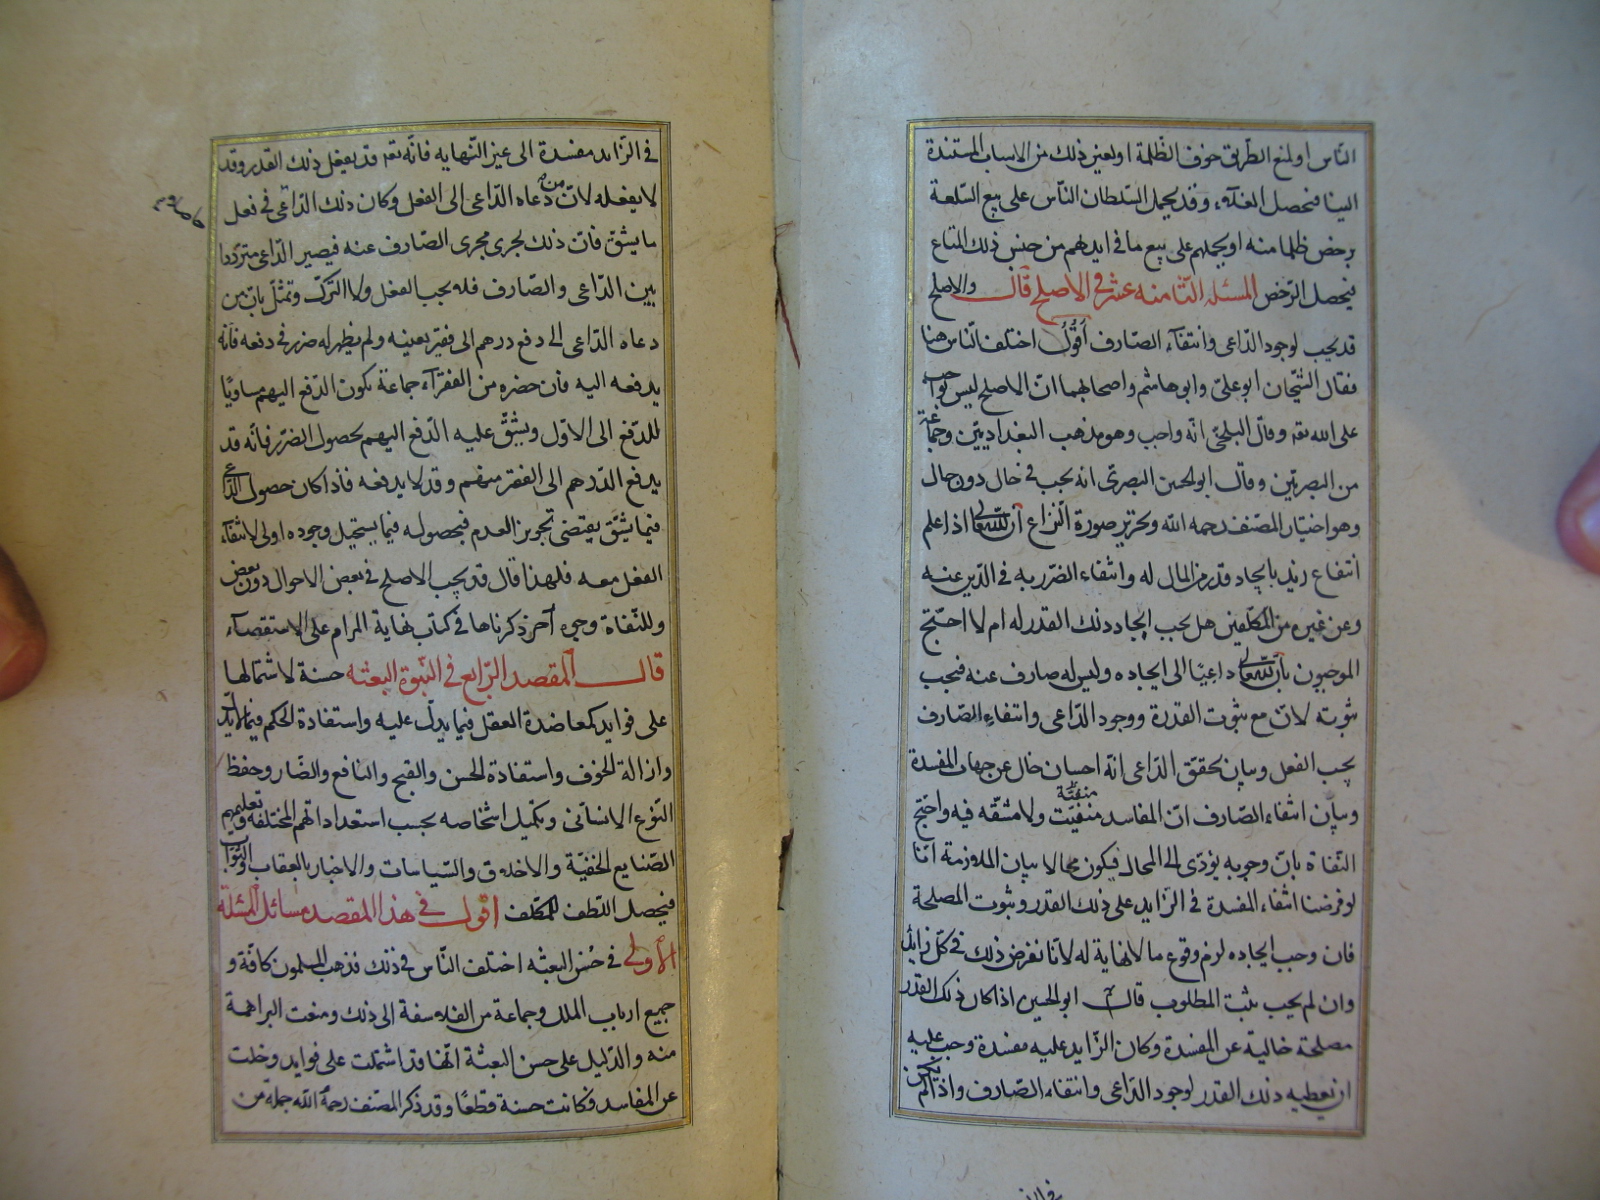 الناس او لمنع الطريق خوف الظلمة او لغير ذلك من الاسباب المستندة
الينا فيحصل الغلاء، وقد يحمل السلطان الناس على بيع السلعة
برخص ظلما منه او يحملهم على بيع ما في ايديهم من جنس ذلك المتاع
فيحصل الرخص المسئلة الثامنة عشر في الاصلح قال والاصلح
قد يجب لوجود الداعى وانتفاء الصارف اقول اختلف الناس هنا
فقال الشيخان ابو على وابو هاشم واصحابهما ان الاصلح ليس بواجب
على الله تعم وقال البلخى انه واجب وهو مذهب البغداديين وجماعة
من البصريين وقال ابو الحسين البصرى انه يجب في حال دون حال
وهو اختيار المصنف رحمه الله وتحرير صورة النزاع ان الله تعالى اذا علم
انتفاع زيد بايجاد قدر من المال له وانتفاء الضرر به في الدين عنه
وعن غيره من المكلفين هل يجب ايجاد ذلك القدر له ام لا احتج
الموجبون بان الله تعالى داعيا الى ايجاده وليس له صارف عنه فيجب
ثبوته لان مع ثبوت القدرة ووجود الداعى وانتفاء الصارف
يجب الفعل وبيان تحقق الداعى انه احسان خال عن جهات المفسدة
وبيان انتفاء الصارف ان المفاسد منفيت منتفية ولا مشقه فيه واحتج
النفاة بان وجوبه يؤدى الى المحال فيكون محالا بيان الملازمة انا
لو فرضنا انتفاء المفسدة في الزايد على ذلك القدر وثبوت المصلحة
فان وجب ايجاده لزم وقوع ما لا نهاية له لانا نفرض ذلك في كل زايد
وان لم يجب ثبت المطلوب قال ابو الحسين اذا كان ذلك القدر
مصلحة خالية عن المفسدة وكان الزايد عليه مفسدة وجب عليه
ان يعطيه ذلك القدر لوجود الداعى وانتفاء الصارف واذا لم يكن
في الز
في الزايد مفسدة الى غير النهايه فانه تعم قد يفعل ذلك القدر وقد
لا يفعله لان من دعاه الداعى الى الفعل وكان ذلك الداعى في فعل
ما يشق فان ذلك يجرى مجرى الصارف عنه فيصير الداعى مترددا
بين الداعى والصارف فلا يجب الفعل ولا الترك وتمثل بان من
دعاه الداعى الى دفع درهم الى فقير بعينه ولم يظهر له ضرر في دفعه فانه
يدفعه اليه فان حضره من الفقرآء جماعة يكون الدفع اليهم مساويا
للدفع الى الاول ويشق عليه الدفع اليهم لحصول الضرر فانه قد
يدفع الدرهم الى الفقير منهم وقد لا يدفعه فاذا كان حصول الداعى
فيما يشق يقتضى تجويز العدم فبحصوله فيما يستحيل وجوده اولى لانتفاء
الفعل معه فلهذا قال قد يجب الاصلح في بعض الاحوال دون بعض
وللنفاة وجوه اخر ذكرناها في كتاب نهاية المرام على الاستقصاء
قال المقصد الرابع في النبوة البعثه حسنة لاشتمالها
على فوايد كمعاضدة العقل فيما يدل عليه واستفادة الحكم فيما لا يدل
وازالة الخوف واستفادة الحسن والقبح والنافع والضار وحفظ
النوع الانسانى وتكميل اشخاصه بحسب استعداداتهم المختلفة وتعليمهم
الصنايع الخفية والاخلاق والسياسات والاخبار بالعقاب والثواب
فيحصل اللطف للمكلف اقول في هذا المقصد مسائل المسئلة
الاولى في حسن البعثه اختلف الناس في ذلك فذهب المسلمون كافة و
جميع ارباب الملل وجماعة من الفلاسفة الى ذلك ومنعت البراهمة
منه والدليل على حسن البعثة انها قد اشتملت على فوايد وخلت
عن المفاسد فكانت حسنة قطعا وقد ذكر المصنف رحمه الله جملة من